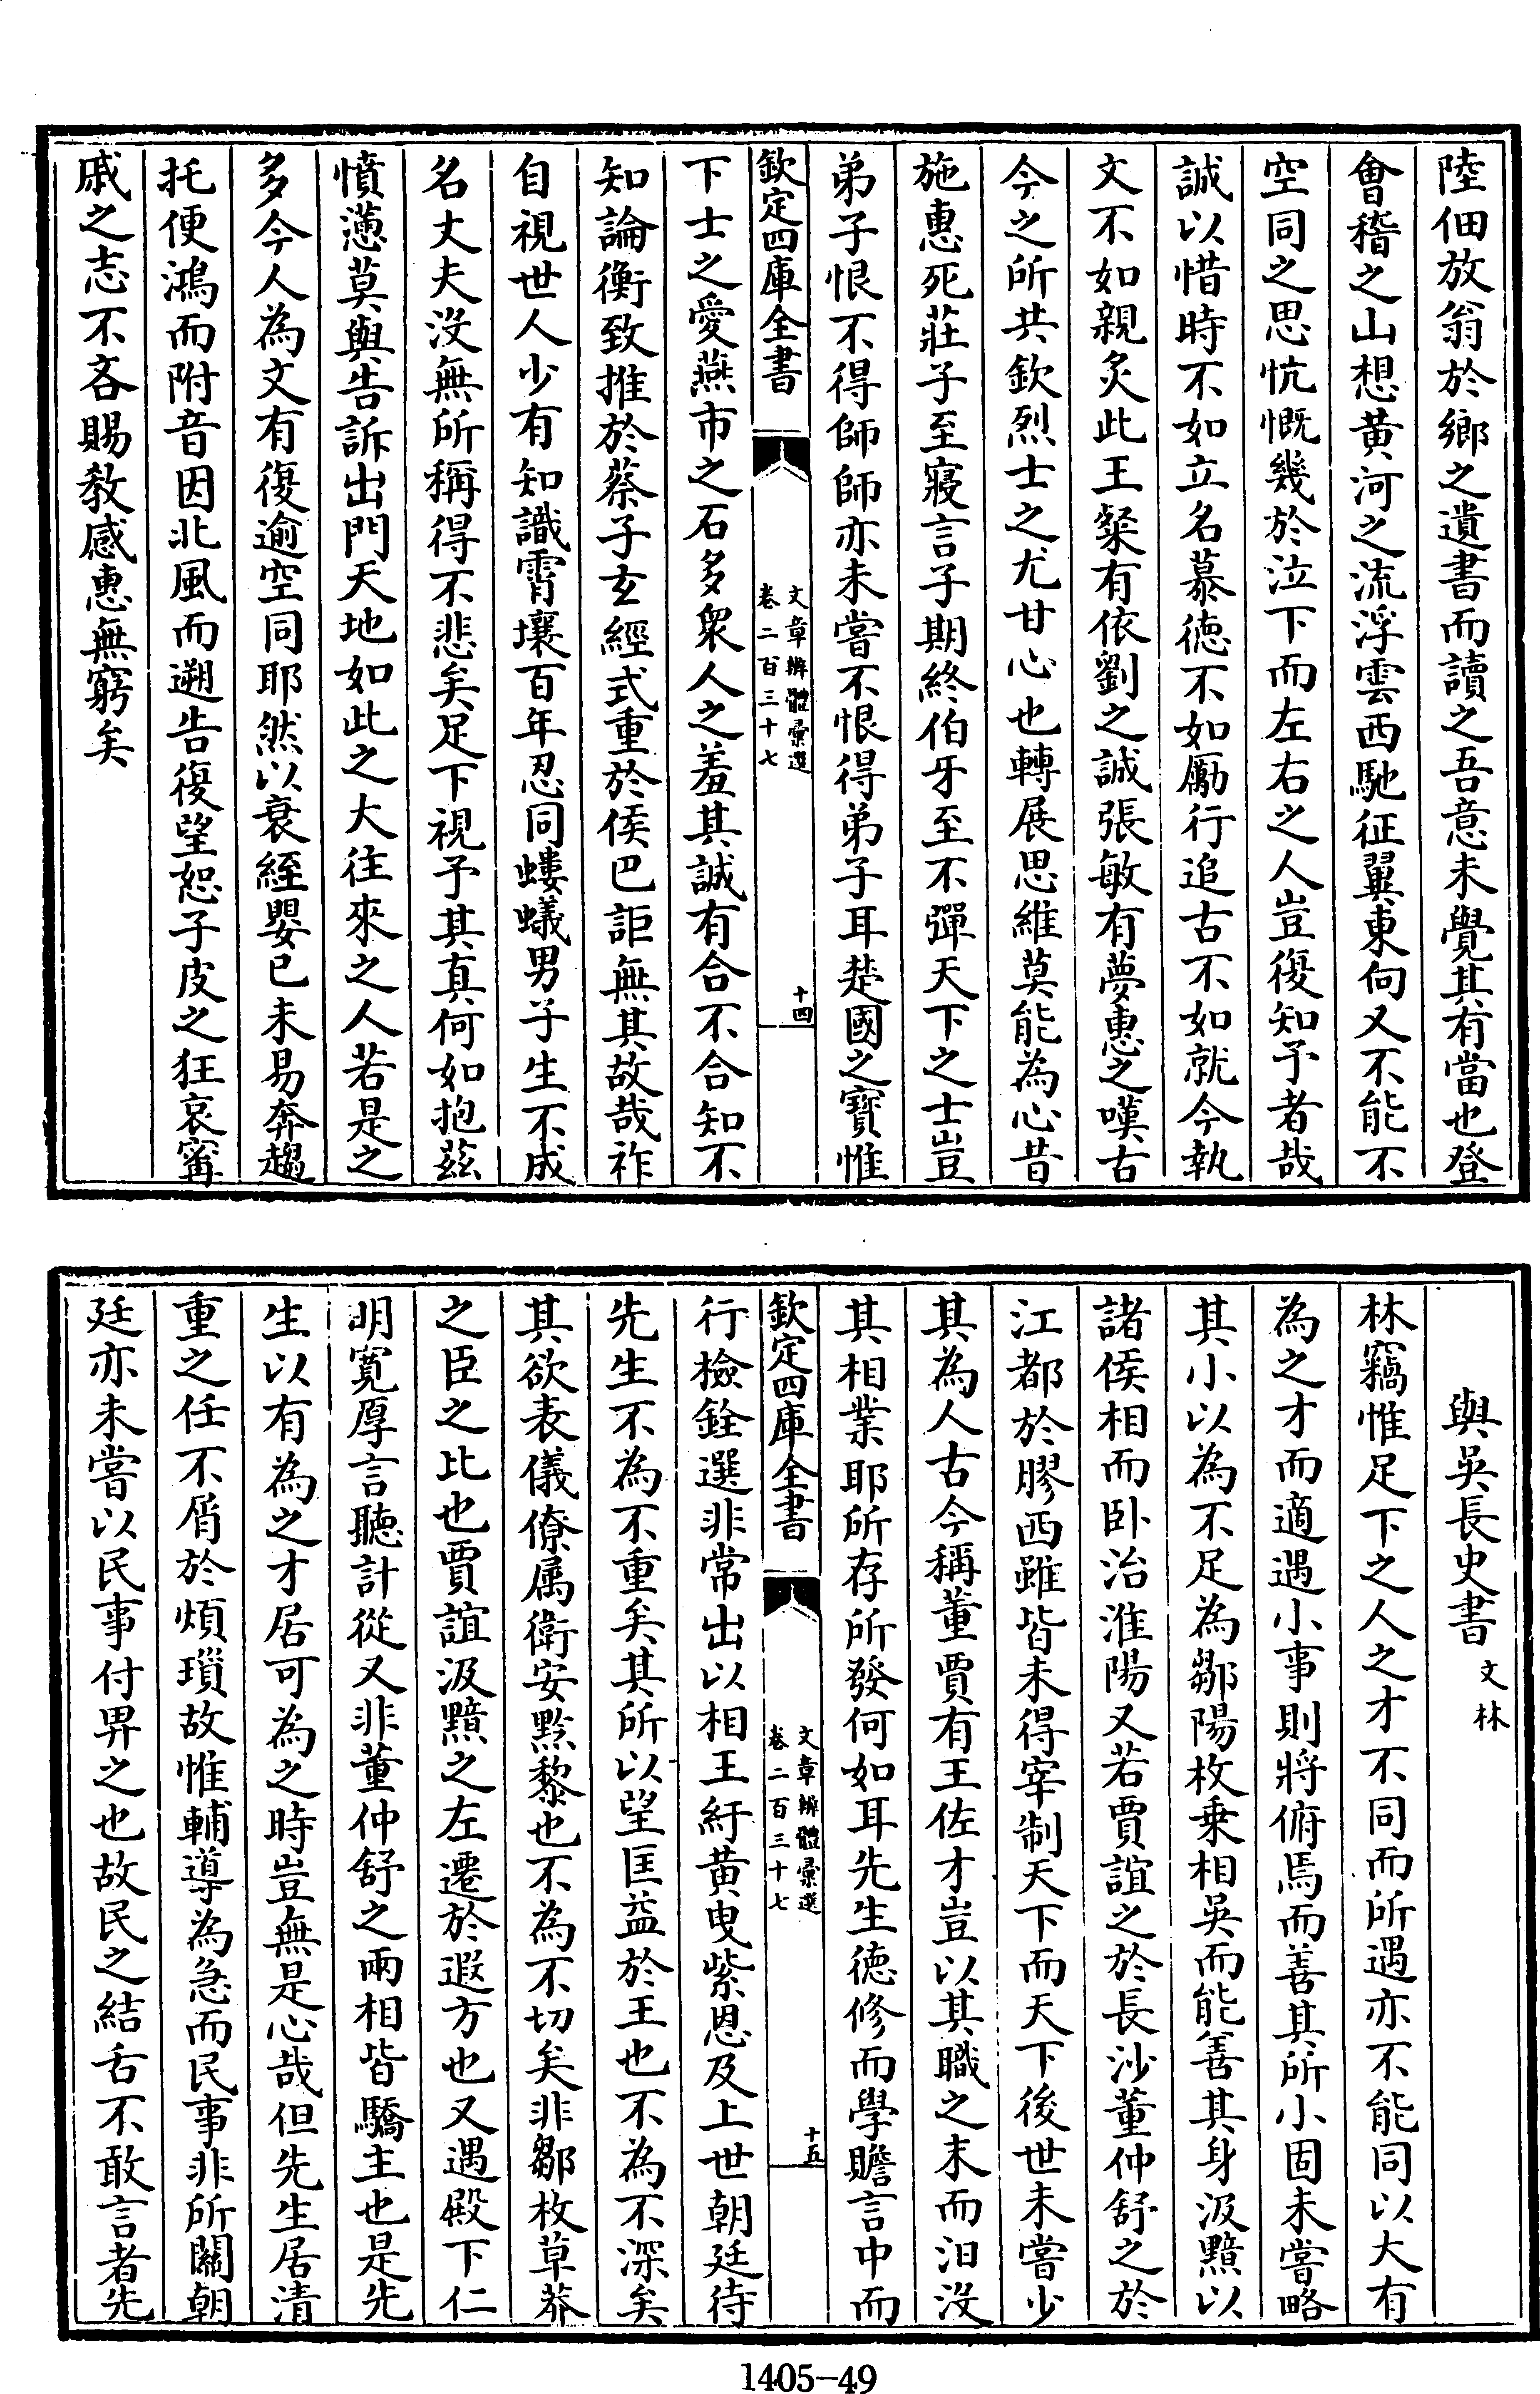 陸佃放翁於鄉之遺書而讀之吾意未覺其有當也登
會稽之山想黃河之流浮雲西馳征翼東向又不能不
空同之思忼慨幾於泣下而左右之人豈復知予者哉
誠以惜時不如立名慕徳不如厲行追古不如就今執
文不如親炙此王粲有依劉之誠張敏有夢惠之嘆古
今之所共欽烈士之尤甘心也轉展思維莫能為心昔
施惠死莊子至寢言子期終伯牙至不彈天下之士豈
弟子恨不得師師亦未嘗不恨得弟子耳楚國之寶惟
欽定四庫全書
文章辨體彙選
卷二百三十七
十四
下士之愛燕市之石多衆人之羞其誠有合不合知不
知論衡致推於蔡子玄經式重於侯巴詎無其故哉祚
自視世人少有知識霄壤百年忍同螻蟻男子生不成
名丈夫没無所稱得不悲矣足下視予其真何如抱茲
憤懣莫與告訴出門天地如此之大往來之人若是之
多今人為文有復逾空同耶然以衰絰嬰已未易奔趨
托便鴻而附音因北風而遡告復望恕子皮之狂哀甯
戚之志不吝賜教感惠無窮矣
與吳長史書 文林
林竊惟足下之人之才不同而所遇亦不能同以大有
為之才而適遇小事則將俯焉而善其所小固未嘗略
其小以為不足為鄒陽枚乗相吳而能善其身汲黯以
諸侯相而卧治淮陽又若賈誼之於長沙董仲舒之於
江都於膠西雖皆未得宰制天下而天下後世未嘗少
其為人古今稱董賈有王佐才豈以其職之末而汨没
其相業耶所存所發何如耳先生徳修而學贍言中而
欽定四庫全書
文章辨體彙選
卷二百三十七
十五
行檢銓選非常出以相王紆黃曵紫恩及上世朝廷待
先生不為不重矣其所以望匡益於王也不為不深矣
其欲表儀僚属衛安黙黎也不為不切矣非鄒枚草莽
之臣之比也賈誼汲黯之左遷於遐方也又遇殿下仁
明寛厚言聽計從又非董仲舒之兩相皆驕主也是先
生以有為之才居可為之時豈無是心哉但先生居清
重之任不屑於煩瑣故惟輔導為急而民事非所關朝
廷亦未嘗以民事付畀之也故民之結舌不敢言者先
1405-49